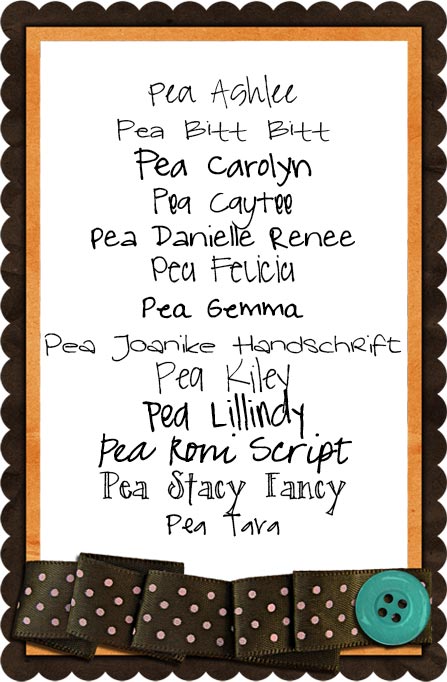 Pea Ashlee
Pea Bitt Bitt
Pea Carolyn
Pea Caytee
Pea Danielle Renee
Pea Felicia
Pea Gemma
Pea Joanike Handschrift
Pea Kiley
Pea Lillindy
Pea Roni Script
Pea Stacy Fancy
Pea Tara